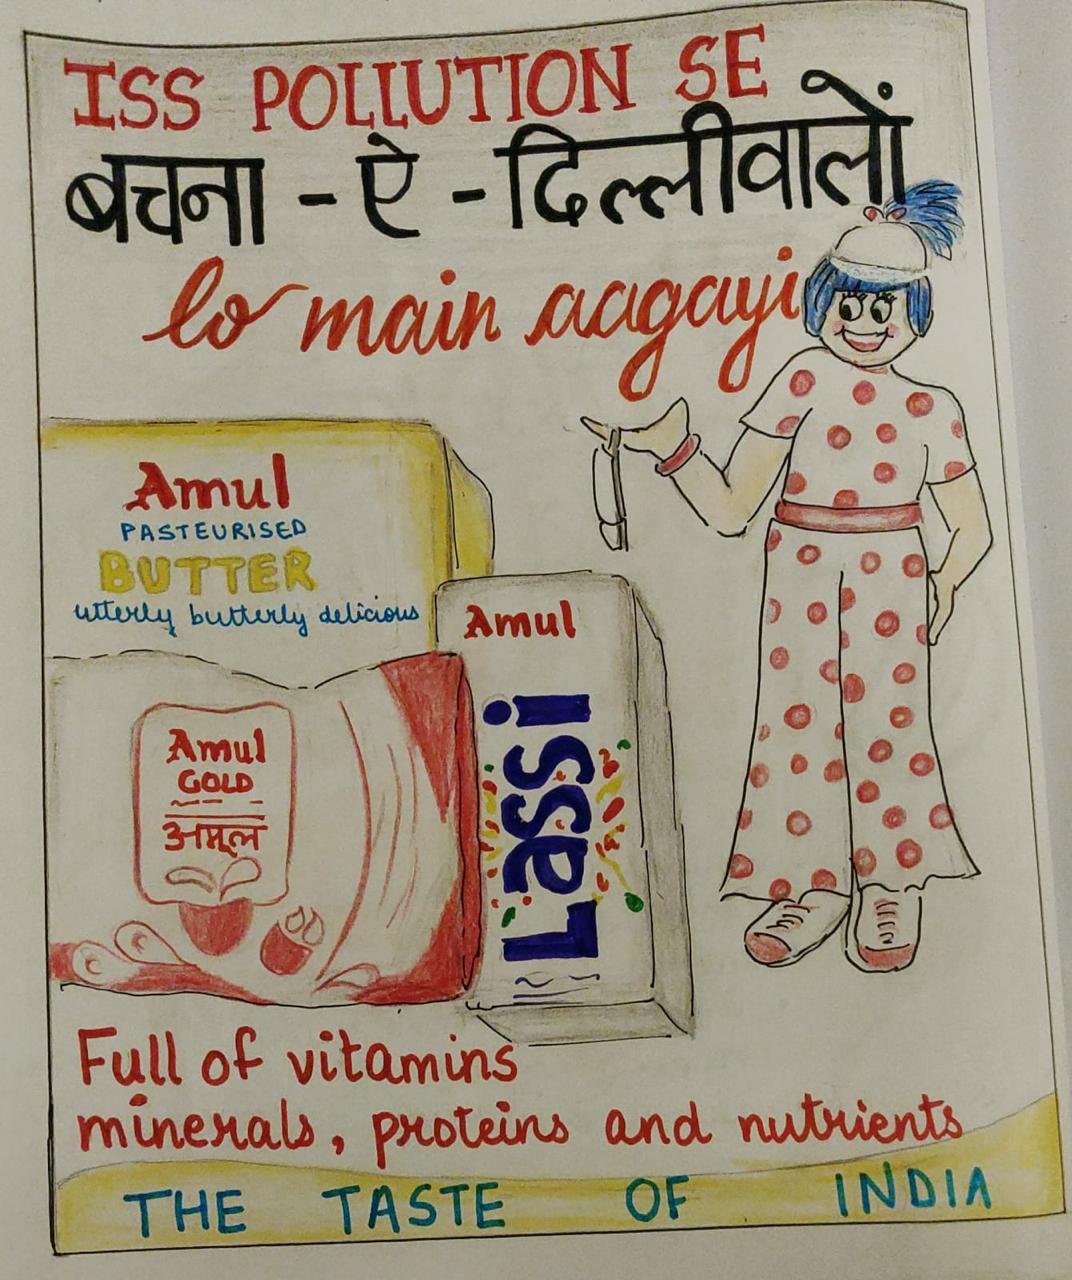 ISS POLLUTION SE
बचना - ऐ - दिल्लीवालों
lo main aagayi
Amul
PASTEURISED
BUTTER
utterly butterly delicious
Amul
Lassi
Amul
GOLD
अमूल
Full of vitamins
minerals, proteins and nutrients
THE TASTE OF INDIA